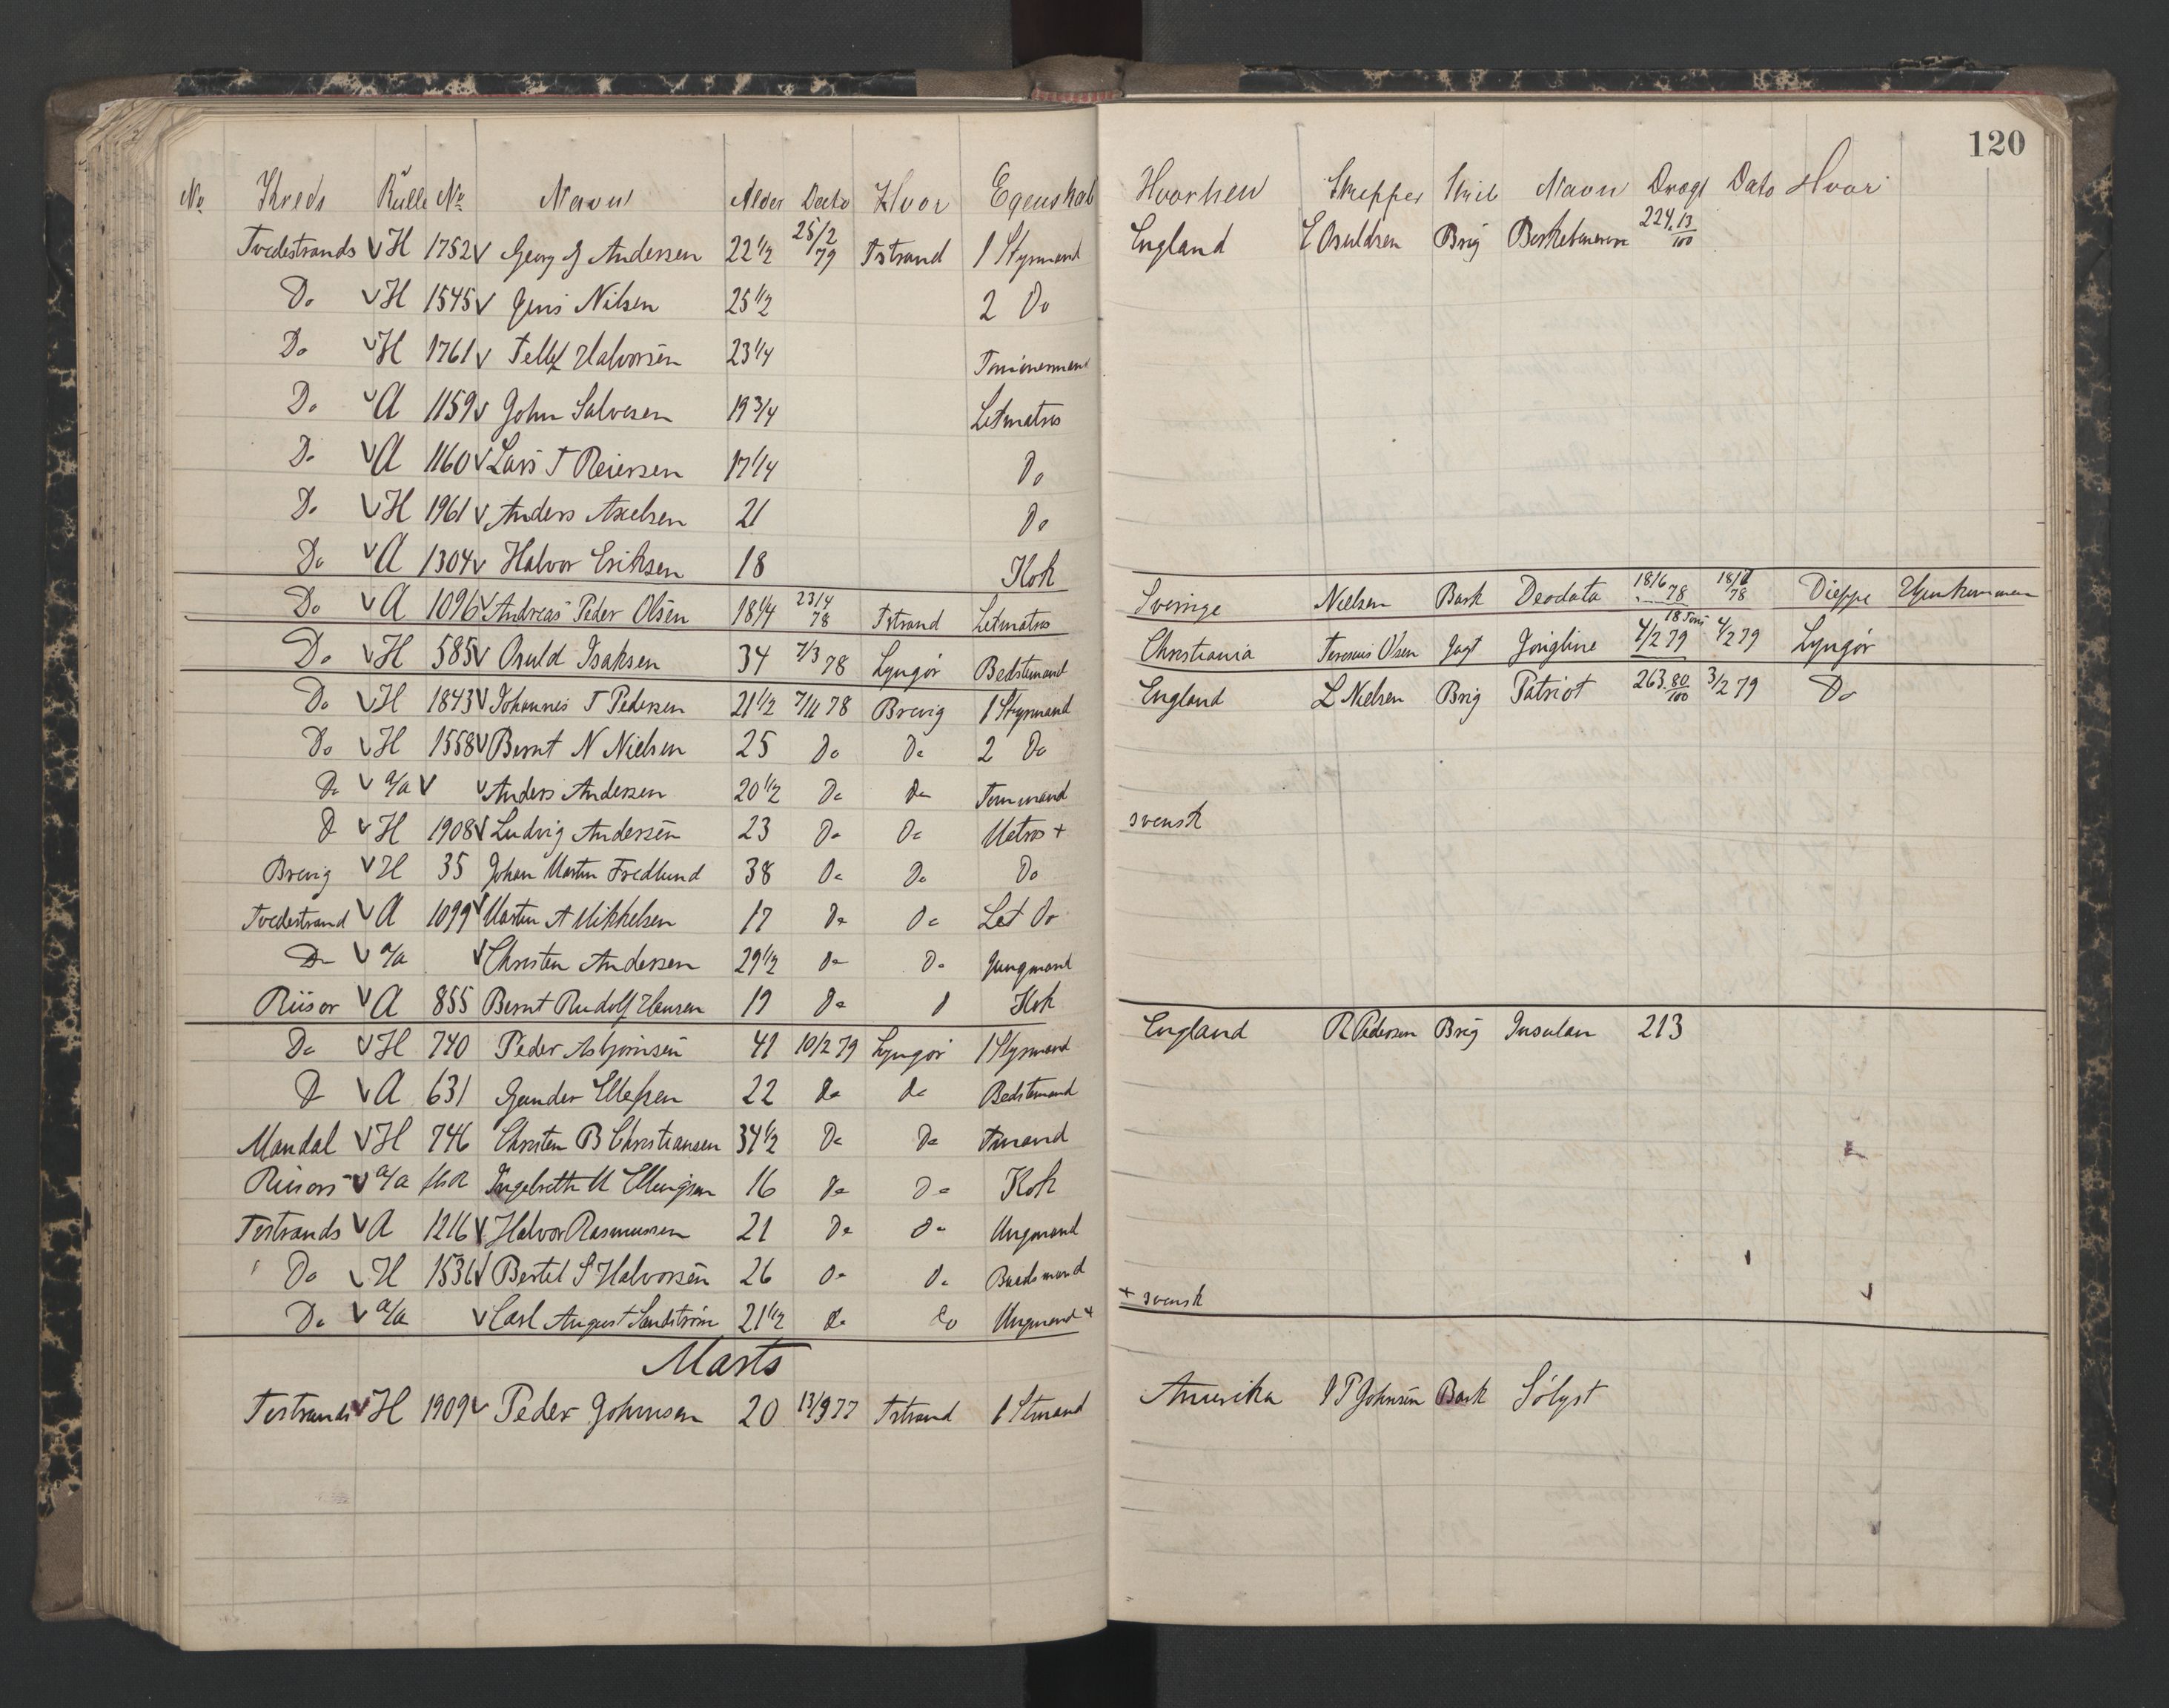 120
No Kreds Rulle No Navn Alder Dato Hvor Egenskab Hvorhen Skipper Navn Drægt Dato Hvor
Tvedestrands √ H 1752 √ Georg J Andersen 22 1/2 25/2 79 Tstrand 1 Styrmand England E Osuldsen Brig 224 13/100
Do √ H 1545 √ Jens Nilsen 25 1/2 2 Do
Do √ H 1761 √ Tellef Halvorsen 23 1/4 Tømmermand
Do √ A 1159 √ John Salvesen 19 3/4 Letmatros
Do √ A 1160 √ Lars T Reiersen 17 1/4 Do
Do √ H 1961 √ Anders Axelsen 21 Do
Do √ A 1304 √ Halvor Eriksen 18 Kok
Do √ A 1096 √ Andreas Peder Olsen 18 1/4 23/4 78 Tstrand Letmatros Sverige Nielsen Bark Deodata 18/6 78 18/8 78 Dieppe Hjemkommen
Do √ H 585 √ Osuld Isaksen 34 7/3 78 Lyngør Bedstemand Christiania Olsen Jagt 18 Tons 4/2 79 4/2 79 Lyngør
Do √ H 1843 √ Johannes T Pedersen 21 1/2 7/11 78 Brevig 1 Styrmand England L Nielsen Brig Patriot 263 80/100 3/2 79 Do
Do √ H 1558 √ Bernt N Nielsen 25 Do Do 2 Do
Do √ a/a √ √ Anders Andersen 20 1/2 Do Do Tømmand
D √ H 1908 √ Ludvig Andersen 23 Do Do Matros + svensk
Brevig √ H 35 Johan Martin Fredlund 38 Do Do Do
Tvedestrand √ A 1099 √ Martin A Mikkelsen 17 Do Do Let Do
Do √ a/a √ Christen Andersen 29 1/2 Do Do Jungmand
Riisør √ A 855 Bernt Rudolf Hansen 19 Do D Kok
Do √ H 740 Peder Asbjørnsen 41 10/2 79 Lyngør 1 Styrmand England R Pedersen Brig Insulan 213
D √ A 631 Gunder Ellefsen 22 Do Do Bedstemand
Mandal √ H 746 Christen B Christiansen 34 1/2 Do Do Tmand
Riisørs √ a/a Ingebreth M Ellingsen 16 Do Do Kok
Testrands √ A 1216 √ Halvor Rasmussen 21 Do Do Ungmand
Do √ H 1536 √ Bertel S Halvorsen 26 Do Do Baadsmand
Do √ a/a √ Carl August Sandström 21 1/2 Do Do Ungmand + + svensk
Marts
Testrands √ H 1909 √ Peder Johnsen 20 13/9 77 Tstrand 1 Stmand Amerika P Johnsen Bark Sølyst